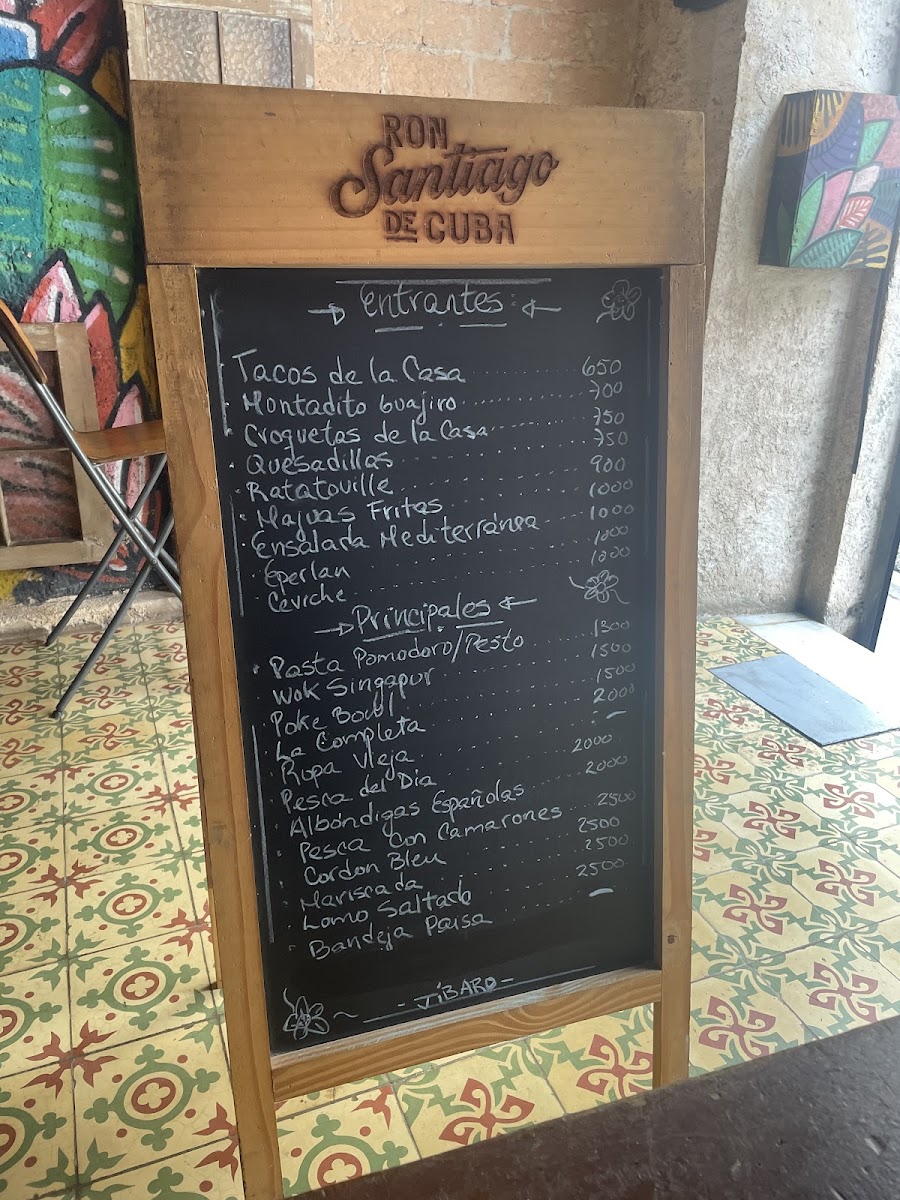 RON
Santiago
DE CUBA
Entrantes:
Tacos de la Casa 650
Montadito Guajiro 700
Croquetas de la Casa 750
Quesadillas 750
Ratatoville 900
Majuas Fritas 1000
Ensalada Mediterránea 1000
Eperlan 1000
Ceviche 1000
Principales
Pasta Pomodoro/Pesto 1300
Wok Singapur 1500
Poke Bowl 1500
La Completa 2000
Ropa Vieja -
Pesca del Dia 2000
Albóndigas Españolas 2000
Pesca Con Camarones 2500
Cordon Bleu 2500
Mariscada 2500
Lomo Saltado 2500
Bandeja Paisa -
- JÍBARO -